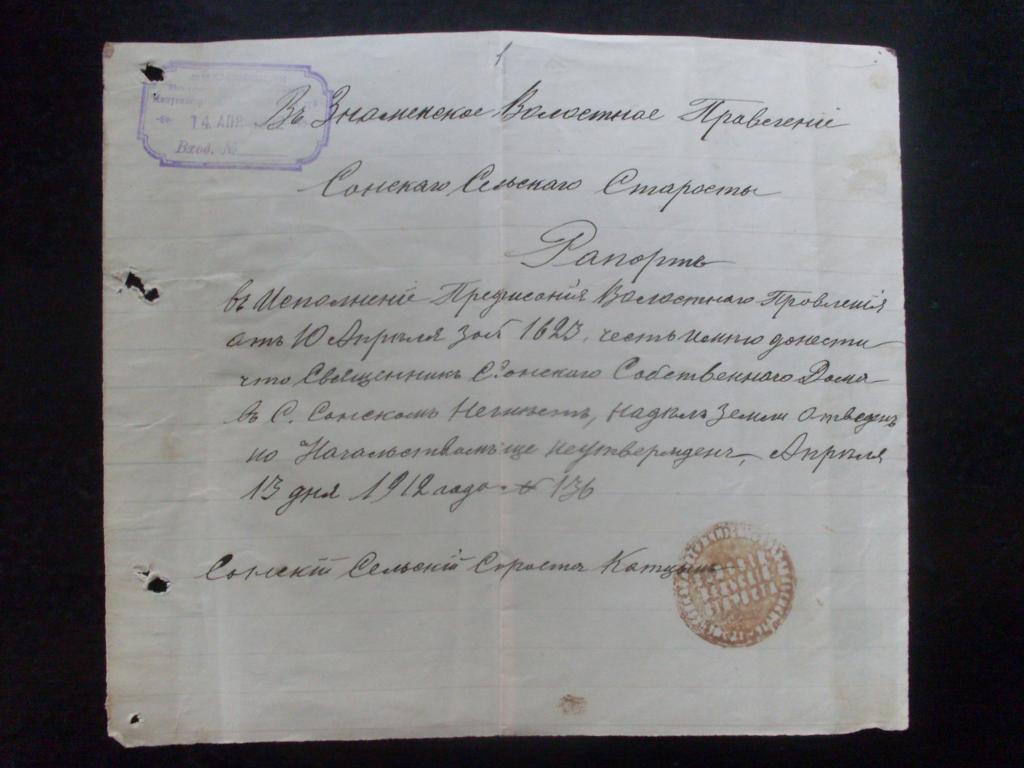 1
14 АПР
Вход. №
Въ Знаменское Волостное Правление
Сонскаго Сельскаго Старосты
Рапортъ
въ Исполнение Предписания Волостного Провления
отъ 10 Апреля за № 1623, честь имею донести
что Священникъ Сонского Собственного Дома
в С. Сонскомъ Неимеетъ, Надилъ Земли отведенъ
но Начальствомъ еще неутвержденъ, Апреля
13 дня 1912 года № 136
Сонский Сельский Староста